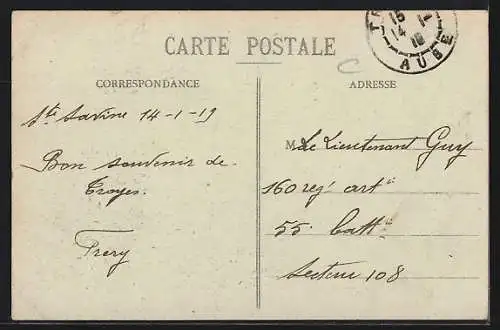 CARTE POSTALE
CORRESPONDANCE
ADRESSE
15
14 1
19
AUBE
C
Ste Savine 14-1-19
Bon souvenir de
Troyes.
Frery
M Le Lieutenant Guy
160 reg' artie
55 Battie
Secteur 108